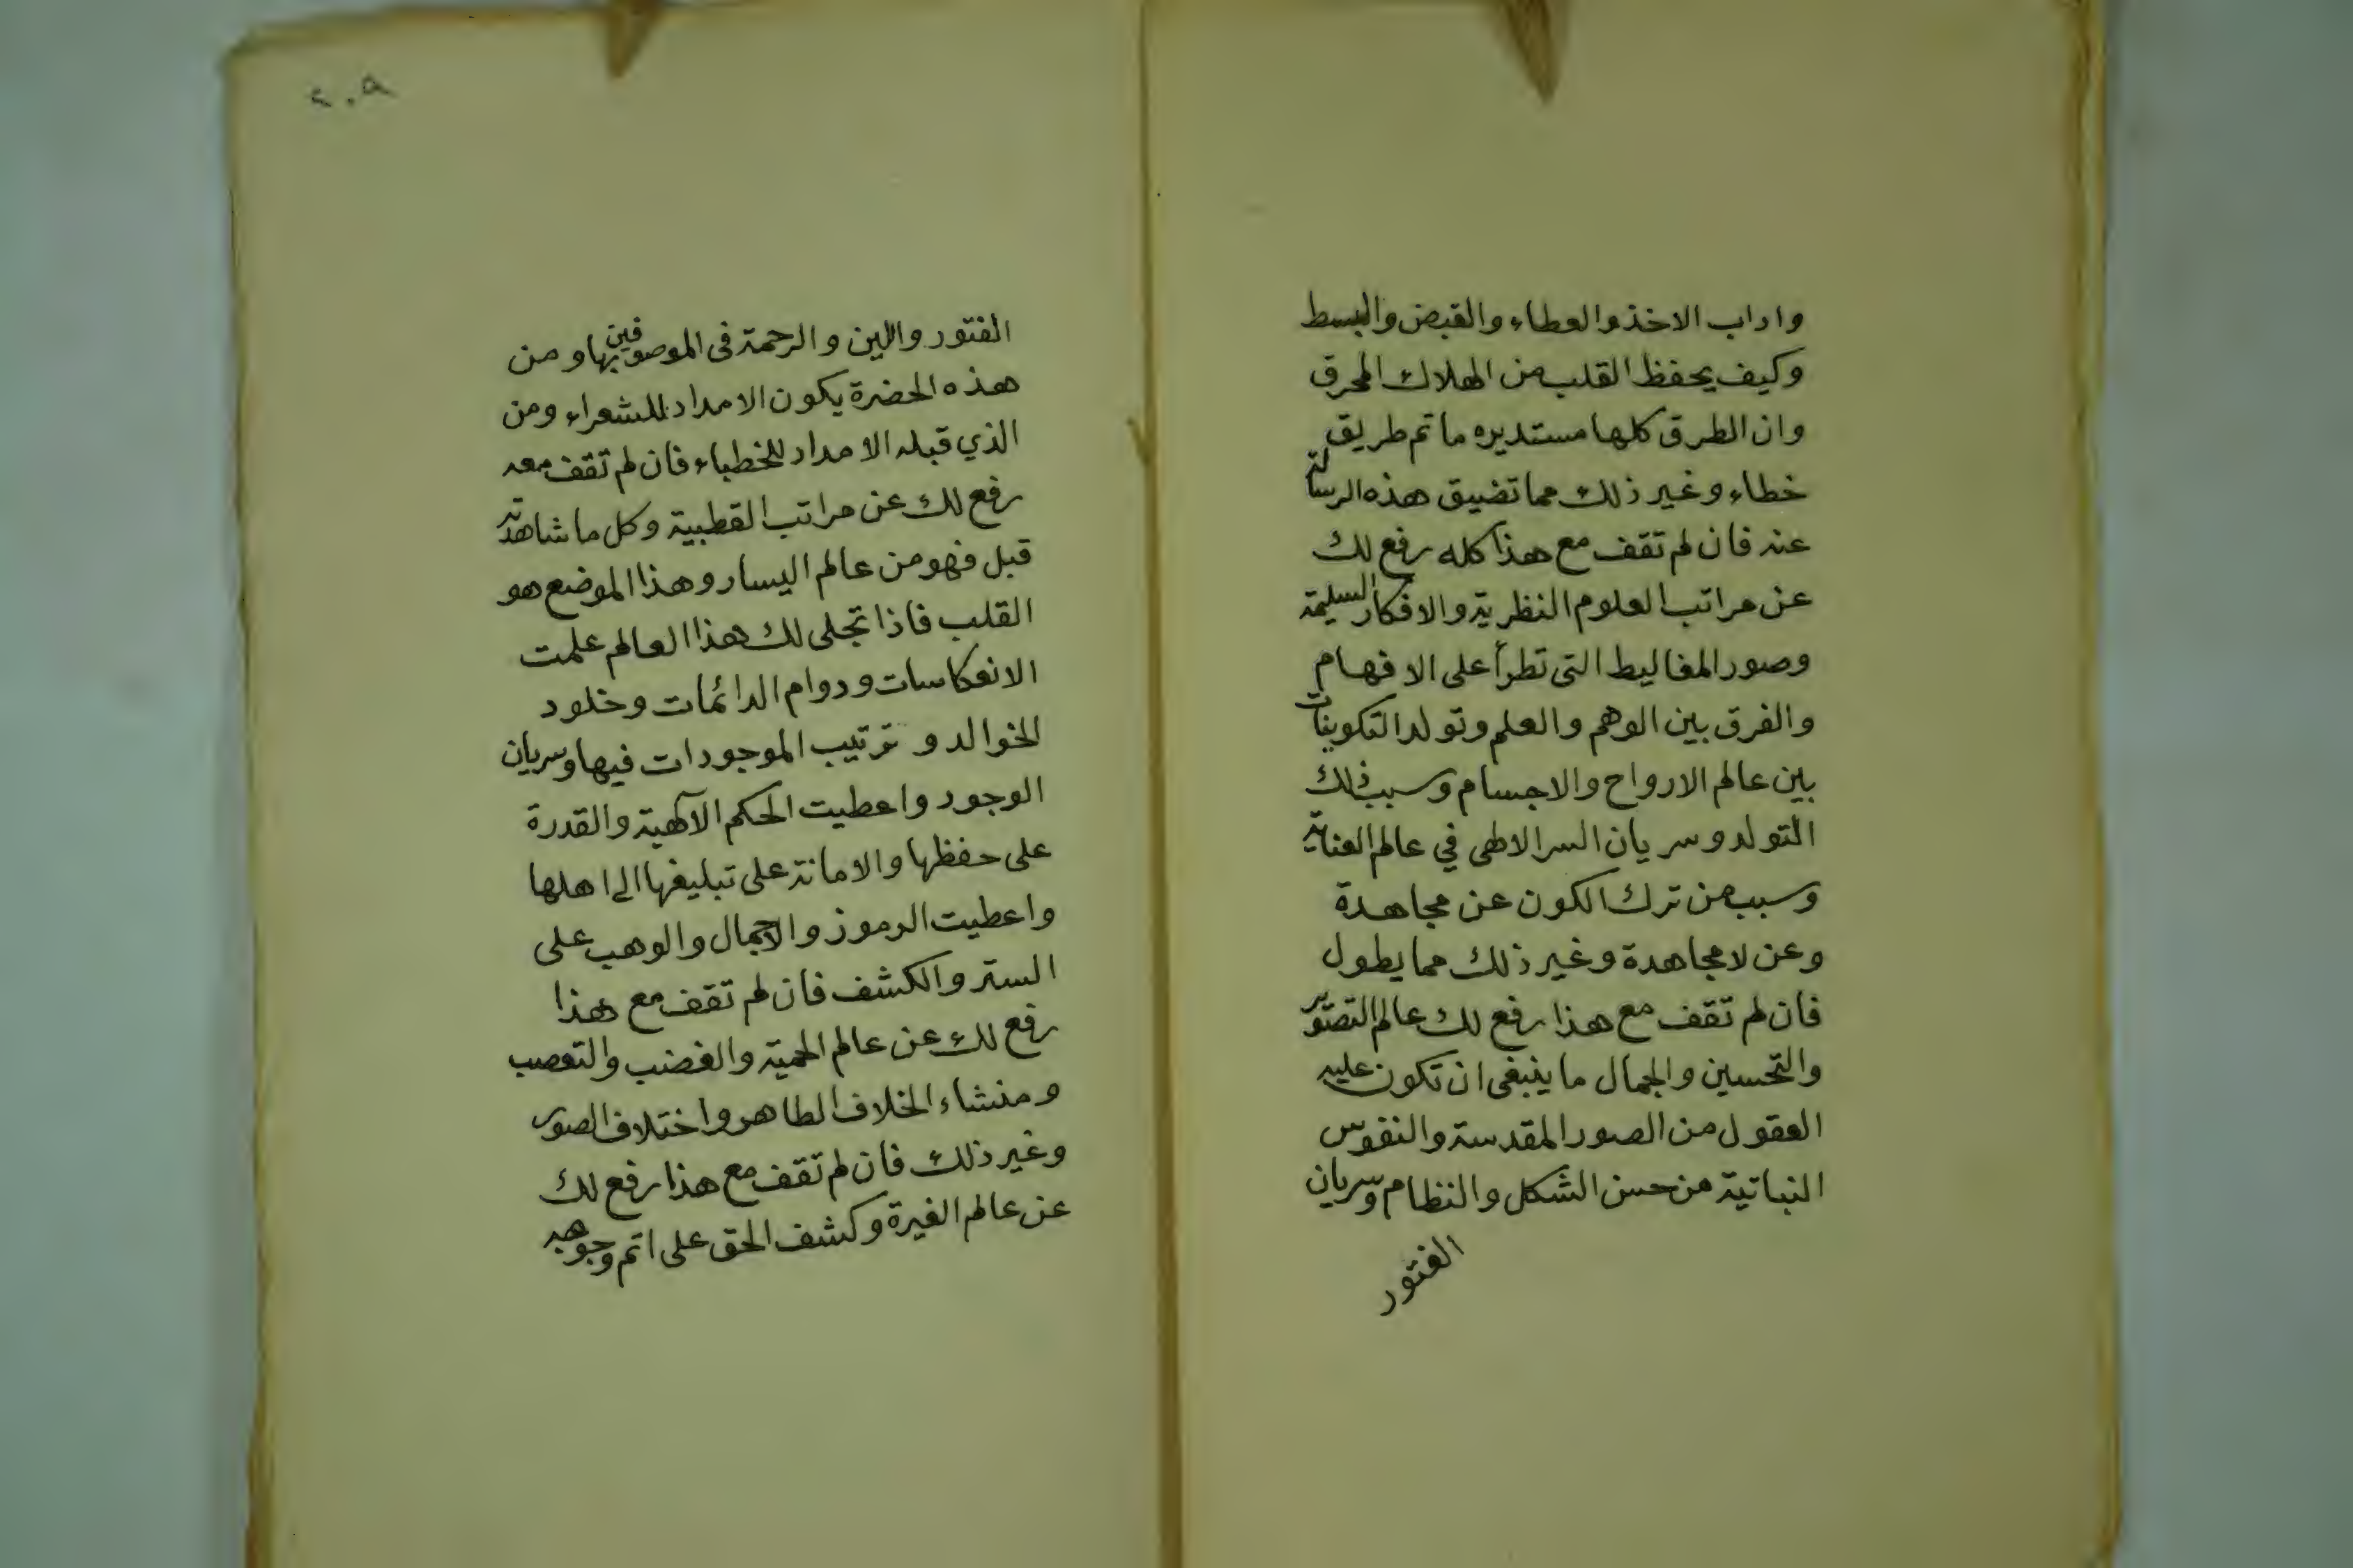 واداب الاخذ والعطاء والقبض والبسط
وكيف يحفظ القلب من الهلاك المحرق
وان الطرق كلها مستديره ما ثم طريق
خطاء وغير ذلك مما تضيق هذه الرسالة
عنه فان لم تقف مع هذا كله رفع لك
عن مراتب العلوم النظرية والافكار السليمة
وصور المغاليط التى تطرأ على الافهام
والفرق بين الوهم والعلم وتولد التكوينات
بين عالم الارواح والاجسام وسبب ذلك
التولد وسريان السر الالهى في عالم العناية
وسبب من ترك الكون عن مجاهدة
وعن لا مجاهدة وغير ذلك مما يطول
فان لم تقف مع هذا رفع لك عالم التصوير
والتحسين والجمال ما ينبغى ان تكون عليه
العقول من الصور المقدسة والنفوس
النباتية من حسن الشكل والنظام وسريان
الفتور
٢٠٩
الفتور واللين والرحمة فى الموصوفين بها ومن
هذه الحضرة يكون الامداد للشعراء ومن
الذي قبله الامداد للخطباء فان لم تقف معه
رفع لك عن مراتب القطبية وكل ما شاهدته
قبل فهو من عالم اليسار وهذا الموضع هو
القلب فاذا تجلى لك هذا العالم علمت
الانعكاسات ودوام الدائمات وخلود
الخوالد و ترتيب الموجودات فيها وسريان
الوجود واعطيت الحكم الآلهية والقدرة
على حفظها والامانة على تبليغها الى اهلها
واعطيت الرموز والاجمال والوهب على
الستر والكشف فان لم تقف مع هذا
رفع لك عن عالم الحمية والغضب والتعصب
ومنشاء الخلاف الطاهر واختلاف الصور
وغير ذلك فان لم تقف مع هذا رفع لك
عن عالم الغيرة وكشف الحق على اتم وجوهه